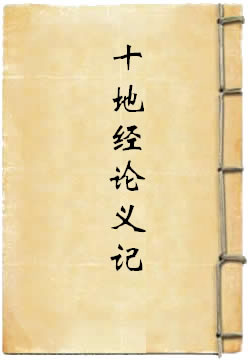 十地经论义记